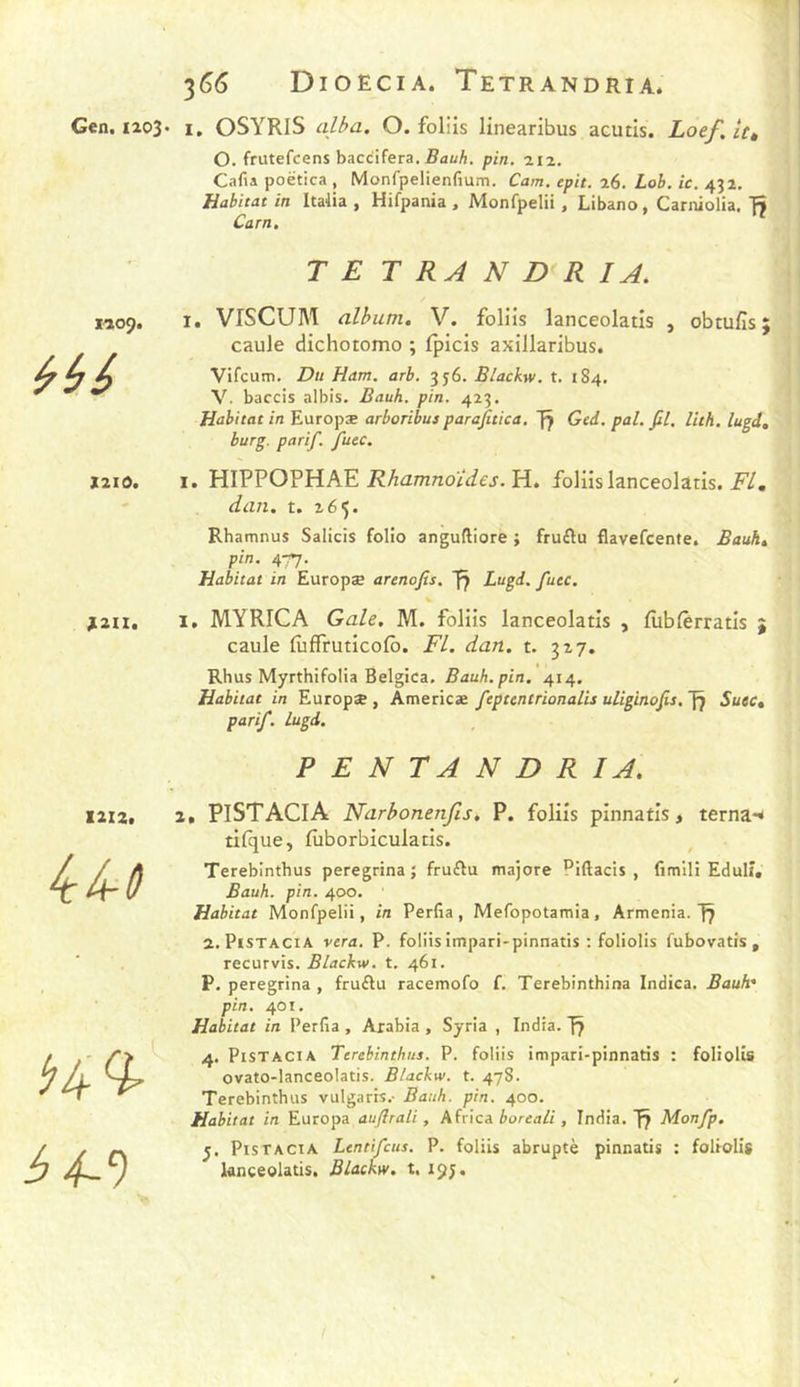 366 DIOECIA. TETRANDRIA.
Gen. 1203. 1. OSYRIS alba. O. foliis linearibus acutis. Loef. it.
O. frutefcens baccifera. Bauh. pin. 212.
Cafia poëtica, Monfpelienfium. Cam. epit. 26. Lob. ic. 432.
Habitat in Italia, Hifpania, Monfpelii, Libano, Carniolia. ♄
Carn.
TETRANDRIA.
1209. 1. VISCUM album. V. foliis lanceolatis, obtufis;
caule dichotomo; fpicis axillaribus.
Vifcum. Du Ham. arb. 356. Blackw. t. 184.
V. baccis albis. Bauh. pin. 423.
Habitat in Europæ arboribus parafitica. ♄ Ged. pal. fil. lith. lugd.
burg. parif. fuec.
1210. 1. HIPPOPHAE Rhamnoïdes. H. foliis lanceolatis. Fl.
dan. t. 265.
Rhamnus Salicis folio anguftiore; fructu flavefcente. Bauh.
pin. 477.
Habitat in Europæ arenofis. ♄ Lugd. fuec.
1211. 1. MYRICA Gale. M. foliis lanceolatis, fubferratis;
caule fuffruticofo. Fl. dan. t. 327.
Rhus Myrthifolia Belgica. Bauh. pin. 414.
Habitat in Europæ, Americæ feptentrionalis uliginofis. ♄ Suec.
parif. lugd.
PENTANDRIA.
1212. 2. PISTACIA Narbonenfis. P. foliis pinnatis, terna-
tifque, fuborbiculatis.
440
Terebinthus peregrina; fructu majore Piftacis, fimili Eduli.
Bauh. pin. 400.
Habitat Monfpelii, in Perfia, Mefopotamia, Armenia. ♄
2. PISTACIA vera. P. foliis impari-pinnatis: foliolis fubovatis,
recurvis. Blackw. t. 461.
P. peregrina, fructu racemofo f. Terebinthina Indica. Bauh.
pin. 401.
Habitat in Perfia, Arabia, Syria, India. ♄
4. PISTACIA Terebinthus. P. foliis impari-pinnatis: foliolis
ovato-lanceolatis. Blackw. t. 478.
Terebinthus vulgaris. Bauh. pin. 400.
Habitat in Europa auftrali, Africa boreali, India. ♄ Monfp.
5. PISTACIA Lentifcus. P. foliis abruptè pinnatis: foliolis
lanceolatis. Blackw. t. 195.